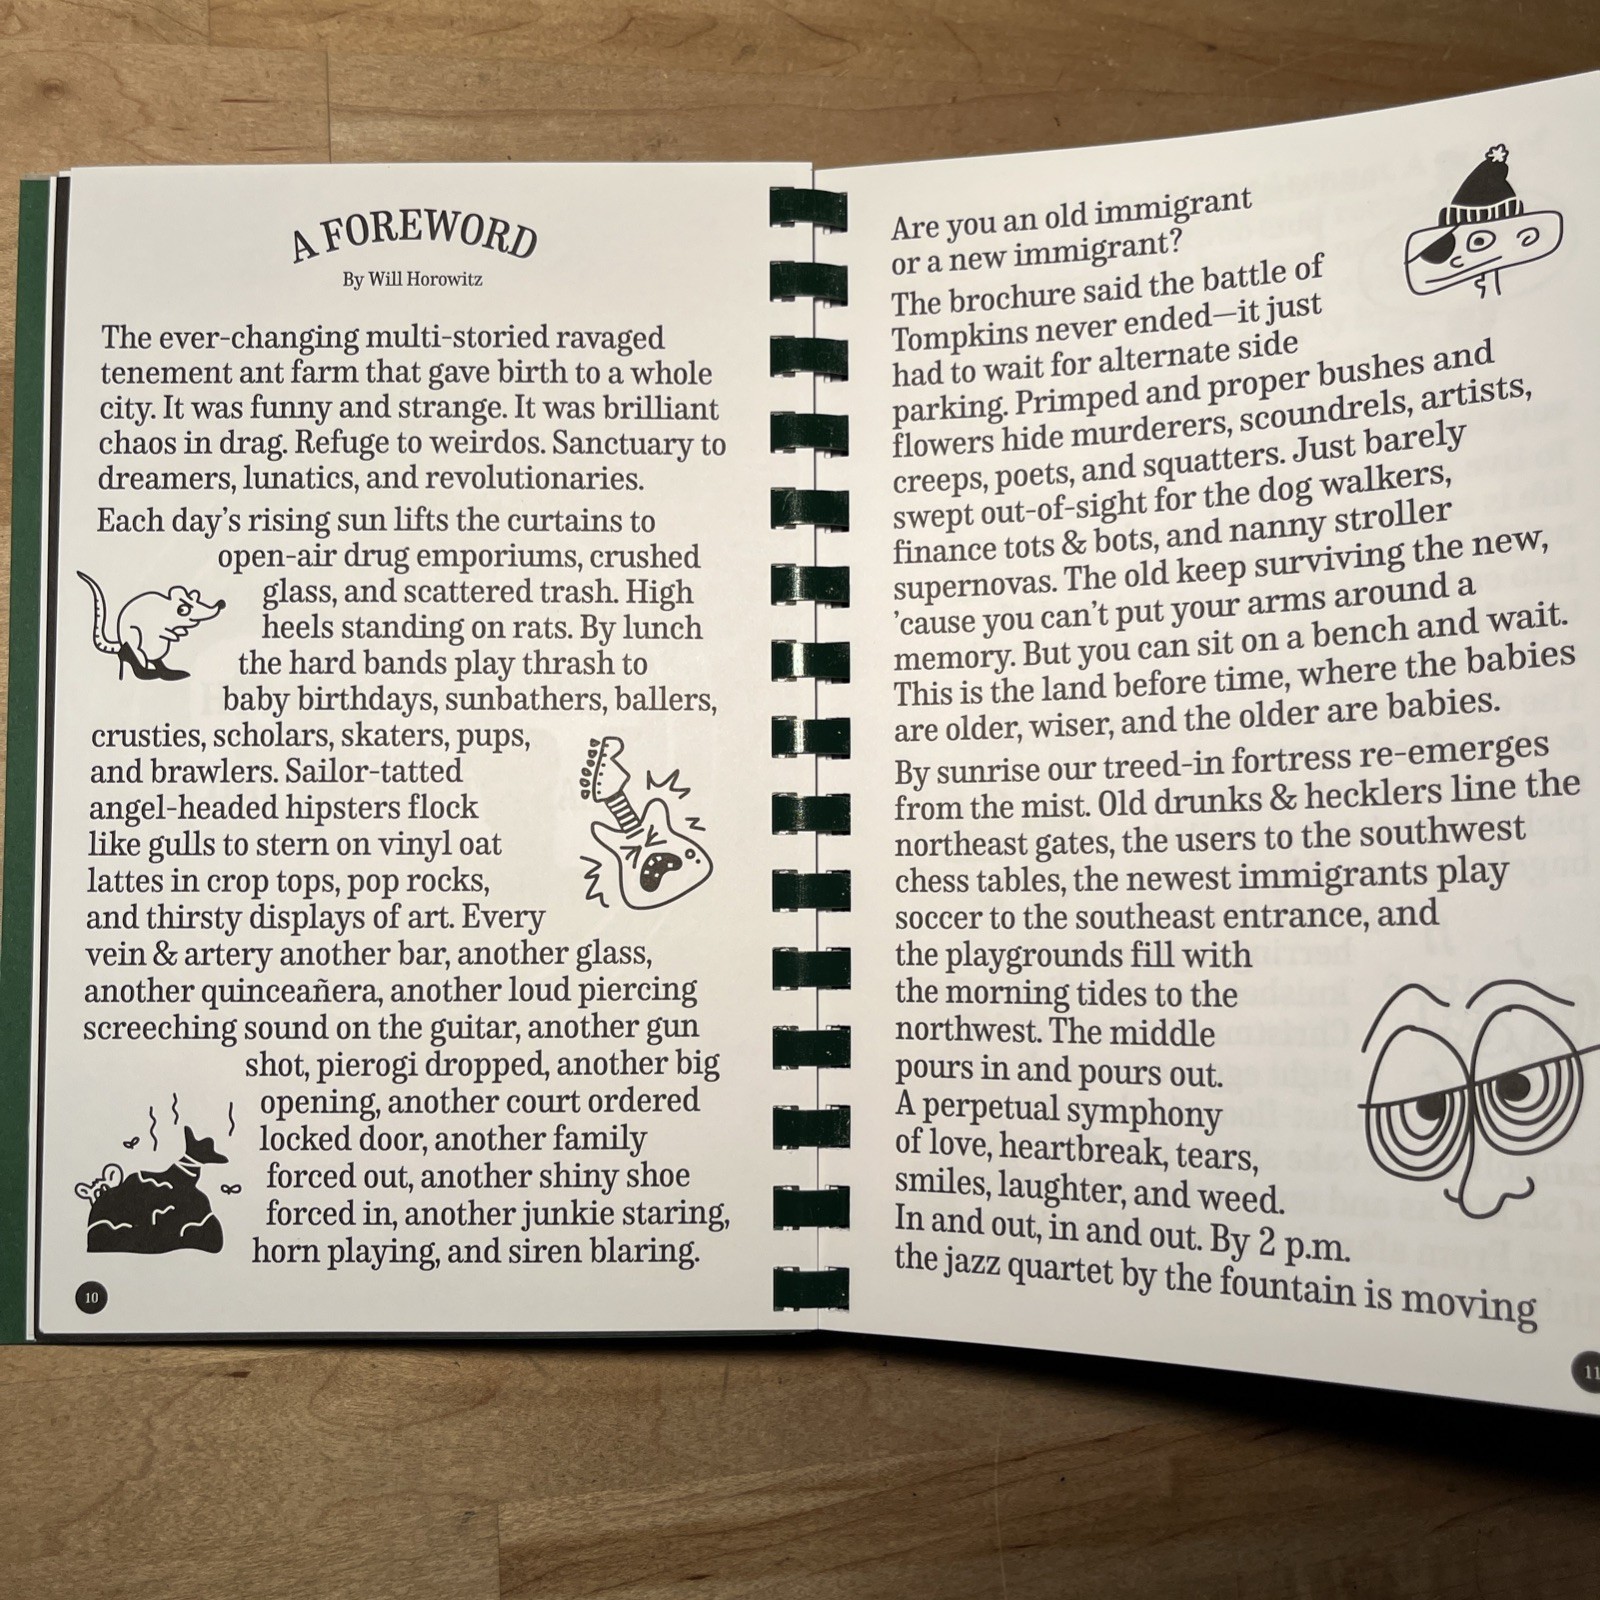 A FOREWORD
By Will Horowitz
The ever-changing multi-storied ravaged
tenement ant farm that gave birth to a whole
city. It was funny and strange. It was brilliant
chaos in drag. Refuge to weirdos. Sanctuary to
dreamers, lunatics, and revolutionaries.
Each day's rising sun lifts the curtains to
open-air drug emporiums, crushed
glass, and scattered trash. High
heels standing on rats. By lunch
the hard bands play thrash to
baby birthdays, sunbathers, ballers,
crusties, scholars, skaters, pups,
and brawlers. Sailor-tatted
angel-headed hipsters flock
like gulls to stern on vinyl oat
lattes in crop tops, pop rocks,
and thirsty displays of art. Every
vein & artery another bar, another glass,
another quinceañera, another loud piercing
screeching sound on the guitar, another gun
shot, pierogi dropped, another big
opening, another court ordered
locked door, another family
forced out, another shiny shoe
forced in, another junkie staring,
horn playing, and siren blaring.
10
Are you an old immigrant
or a new immigrant?
The brochure said the battle of
Tompkins never ended—it just
had to wait for alternate side
parking. Primped and proper bushes and
flowers hide murderers, scoundrels, artists,
creeps, poets, and squatters. Just barely
swept out-of-sight for the dog walkers,
finance tots & bots, and nanny stroller
supernovas. The old keep surviving the new,
'cause you can't put your arms around a
memory. But you can sit on a bench and wait.
This is the land before time, where the babies
are older, wiser, and the older are babies.
By sunrise our treed-in fortress re-emerges
from the mist. Old drunks & hecklers line the
northeast gates, the users to the southwest
chess tables, the newest immigrants play
soccer to the southeast entrance, and
the playgrounds fill with
the morning tides to the
northwest. The middle
pours in and pours out.
A perpetual symphony
of love, heartbreak, tears,
smiles, laughter, and weed.
In and out, in and out. By 2 p.m.
the jazz quartet by the fountain is moving
11